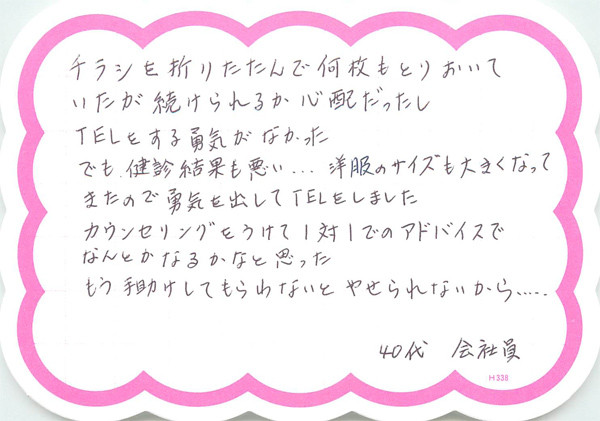 チラシを折りたたんで何枚もとりおいて
いたが続けられるか心配だったし
TELをする勇気がなかった
でも、健診結果も悪い... 洋服のサイズも大きくなって
きたので勇気を出してTELをしました
カウンセリングをうけて1対1でのアドバイスで
なんとかなるかなと思った
もう手助けしてもらわないとやせられないから......
40代 会社員
H338